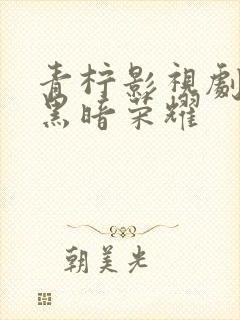 青柠影視劇
黑暗荣耀
朝美光